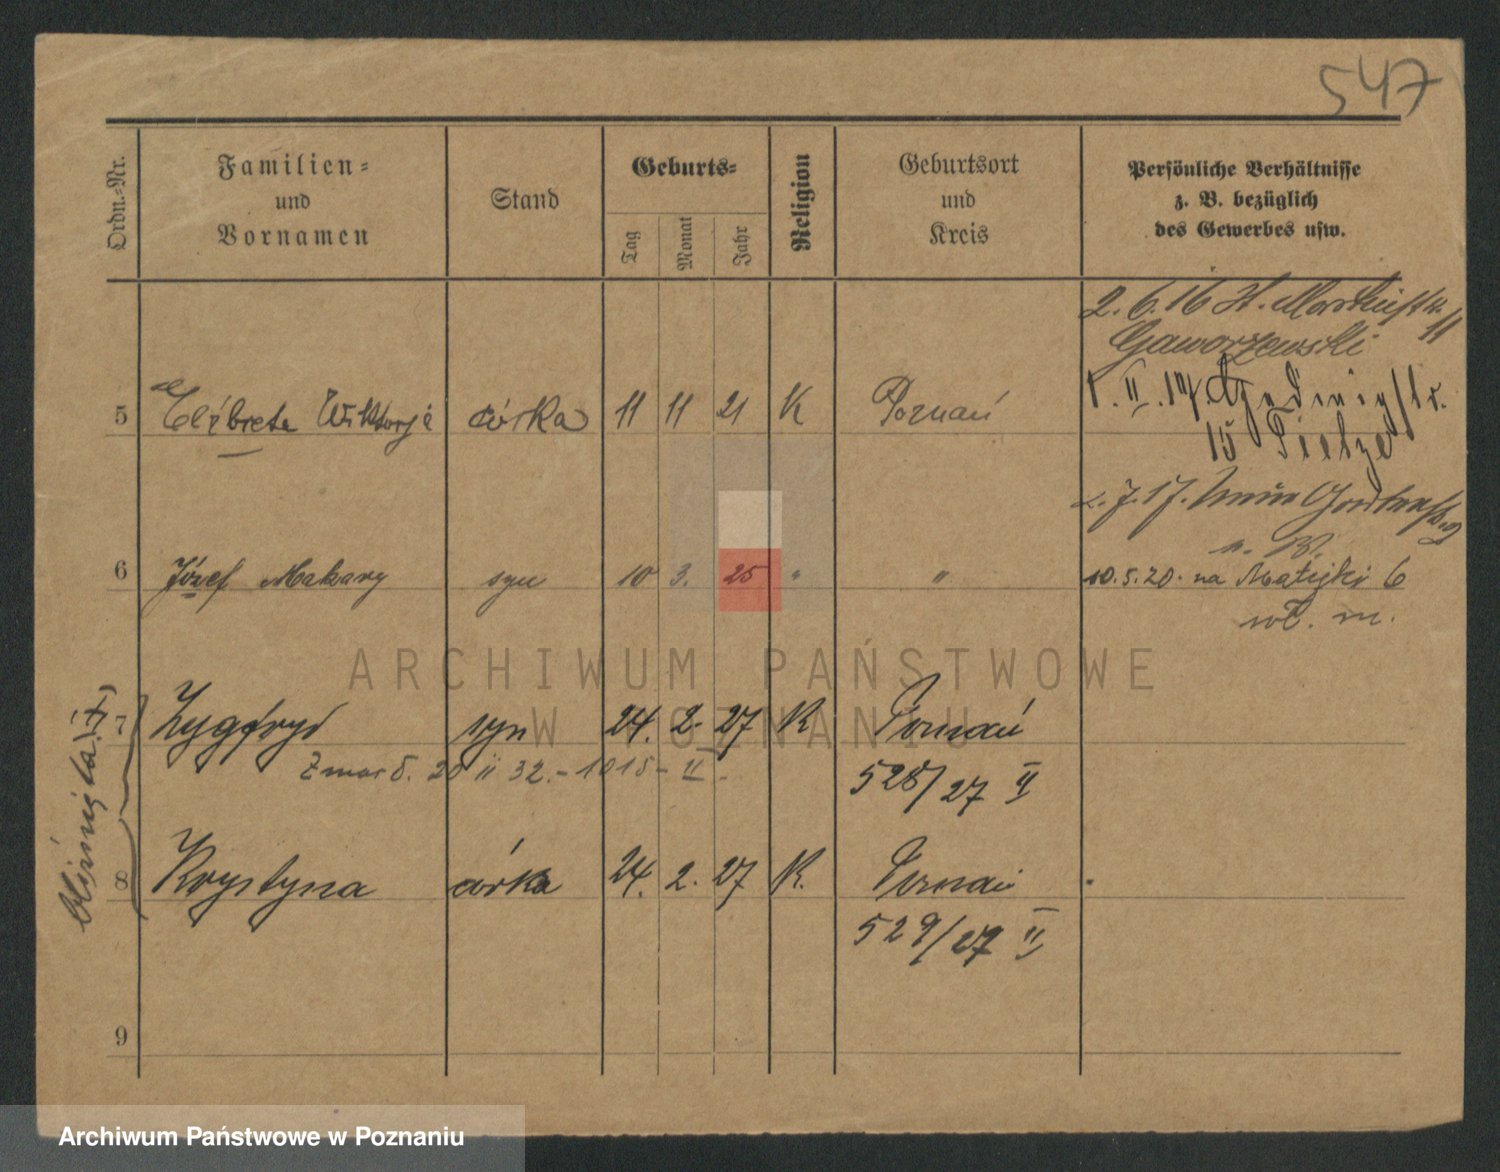 547
Ordn.-Nr.
Familien-
und
Vornamen
Stand
Geburts-
Tag
Monat
Jahr
Religion
Geburtsort
und
Kreis
Persönliche Verhältnisse
z. B. bezüglich
des Gewerbes usw.
2.6.16 St. Martinstr.
11
Gaworzewski
15 Tietze
5 Elżbieta Wiktorja córka 11 11 21 K Poznań
6 Józef Makary syn 10 3. 25 " "
10.5.20. na Matejki 6
wł. m.
7 Zygfryd syn 24. 2. 27 K Poznań
Zmarł. 20 II 32. - 1015 - II.
528/27 II
bliźnięta
8 Krystyna córka 24. 2. 27 K. Poznań
529/27 II
9
ARCHIWUM PAŃSTWOWE
W POZNANIU
Archiwum Państwowe w Poznaniu